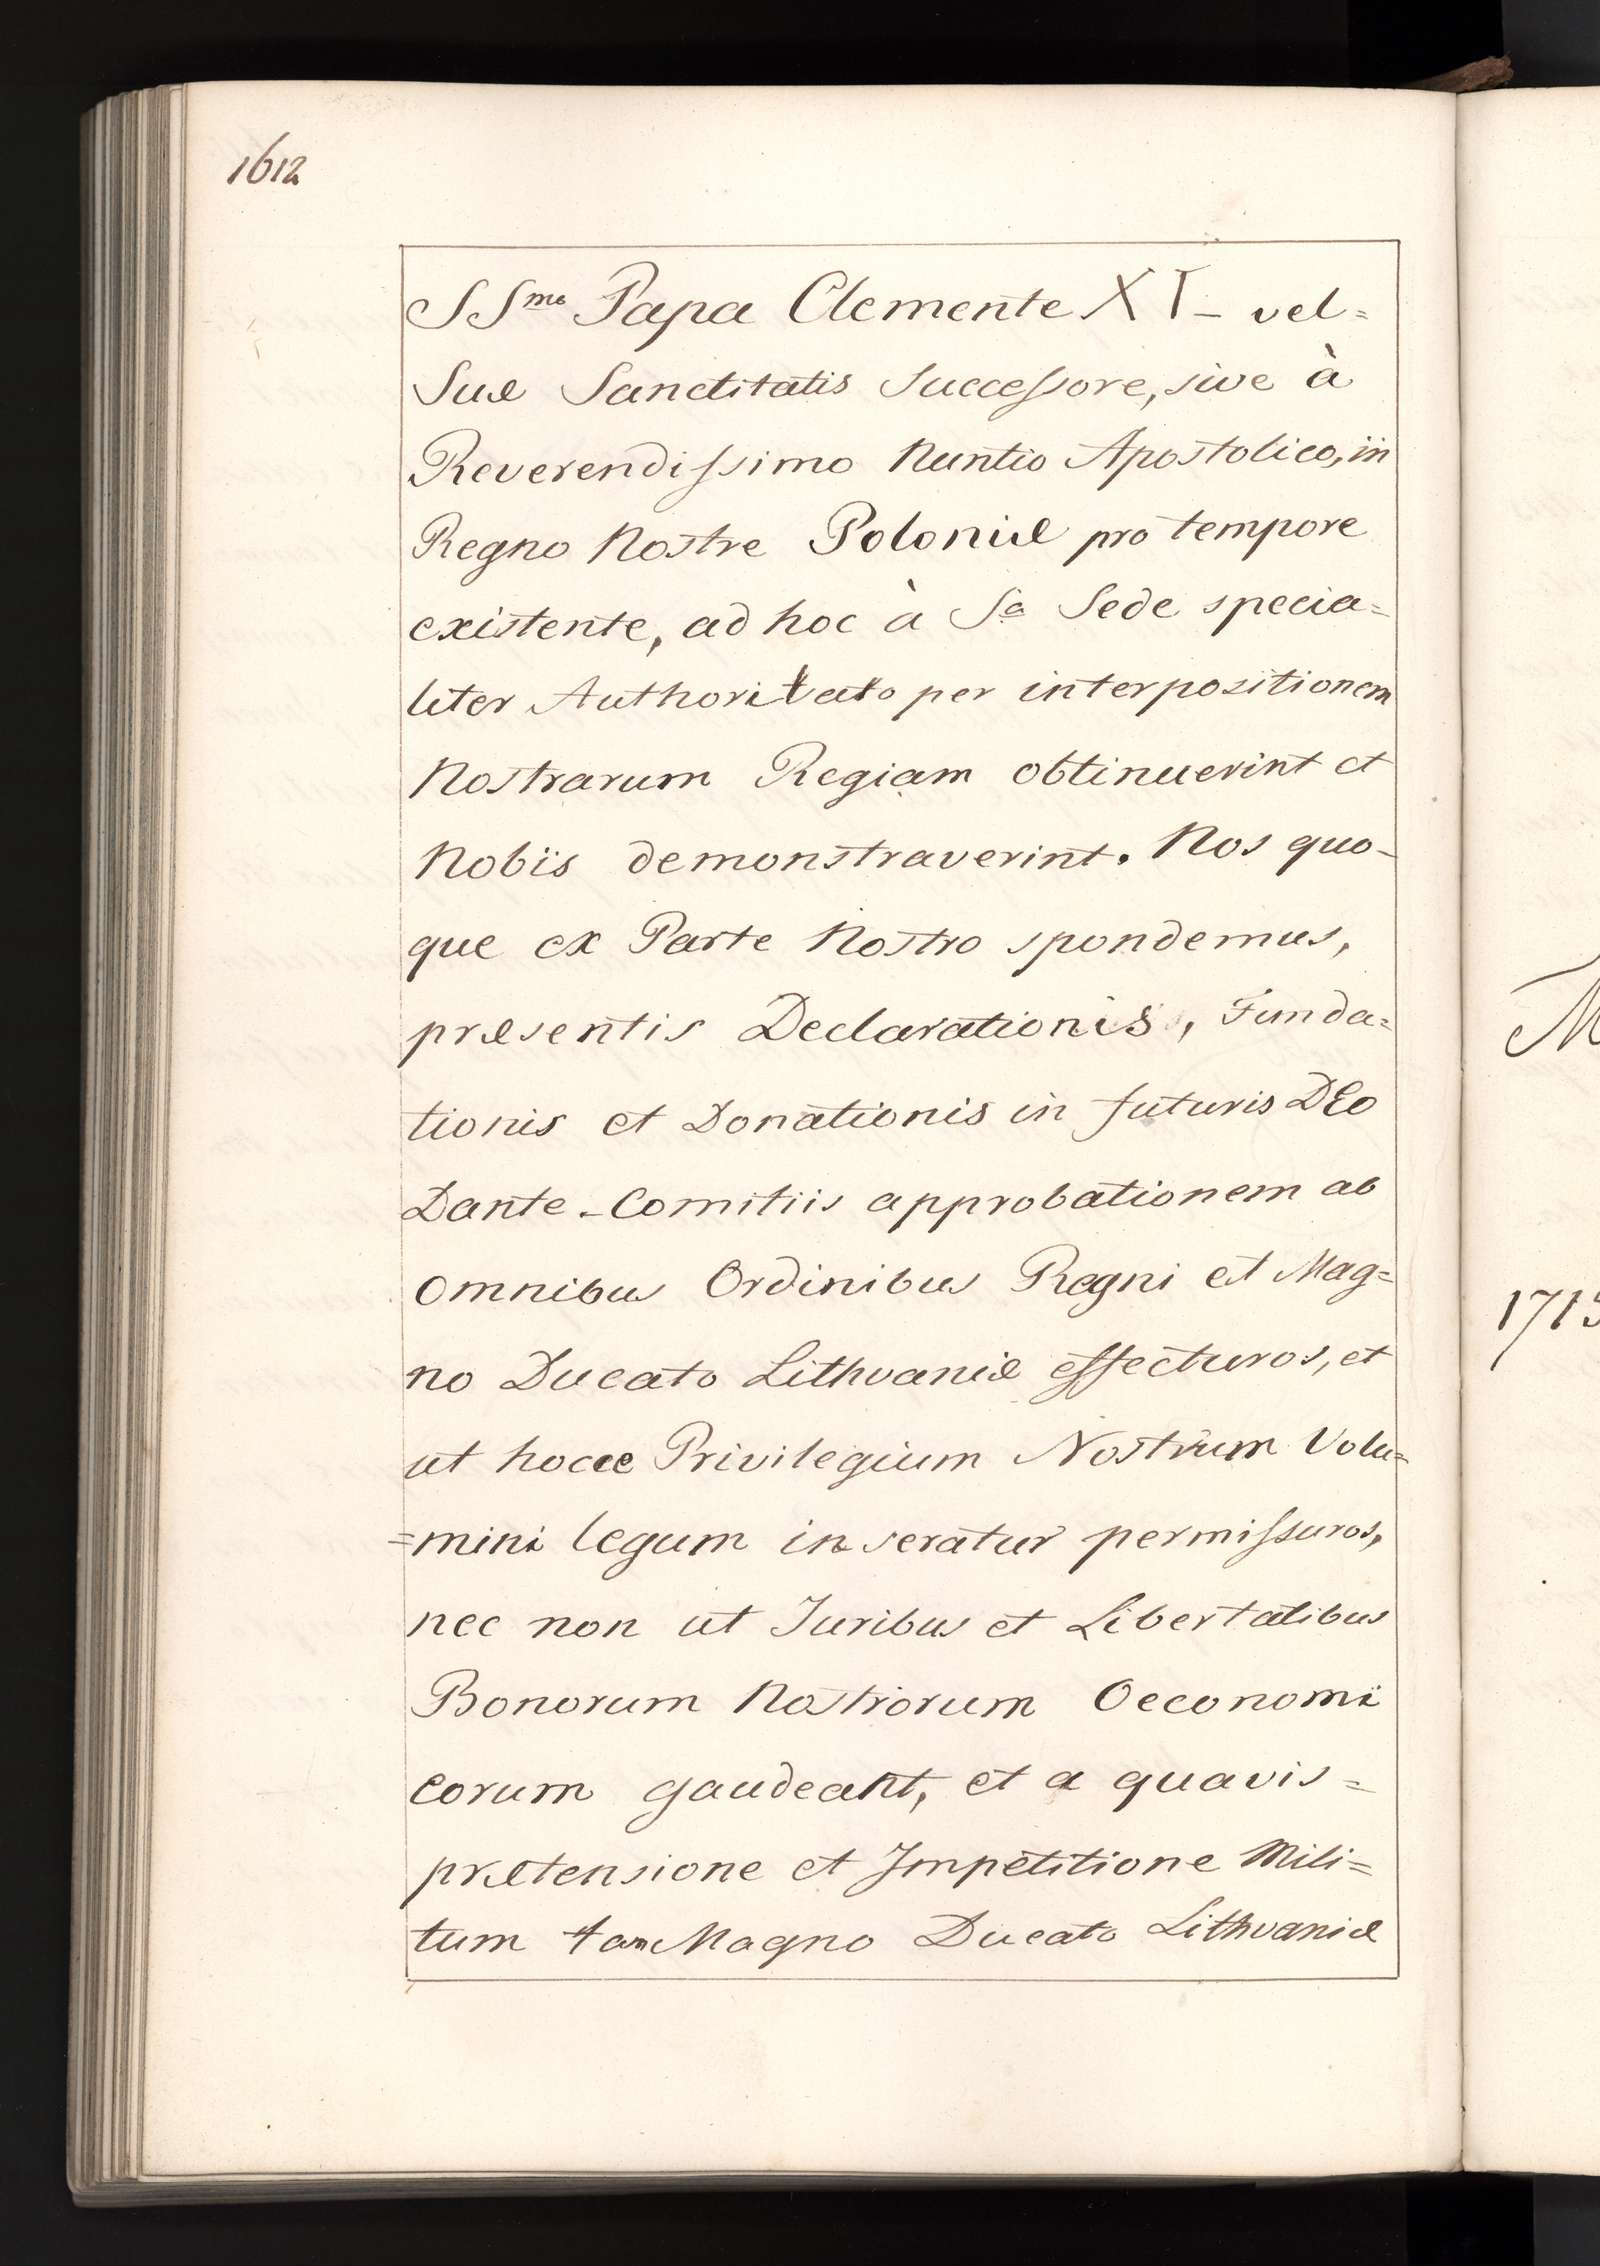 1612
SSmo Papa Clemente XI - vel=
Suæ Sanctitatis Successore, sive à
Reverendissimo Nuntio Apostolico, in
Regno Nostre Poloniæ pro tempore
existente, ad hoc à Sa Sede specia=
liter Authoritato per interpositionem
Nostrarum Regiam obtinuerint et
Nobis demonstraverint. Nos quo-
que ex Parte Nostro spondemus,
præsentis Declarationis, Funda=
tionis et Donationis in futuris DEo
Dante - Comitiis approbationem ab
omnibus Ordinibus Regni et Mag=
no Ducato Lithvaniæ effecturos, et
ut hocce Privilegium Nostrum Volu=
=mini legum inseratur permissuros,
nec non ut Juribus et Libertatibus
Bonorum Nostrorum Oeconomi
corum gaudeant, et a quavis =
prætensione et Impetitione Mili=
tum tam Magno Ducato Lithvaniæ
M
1715